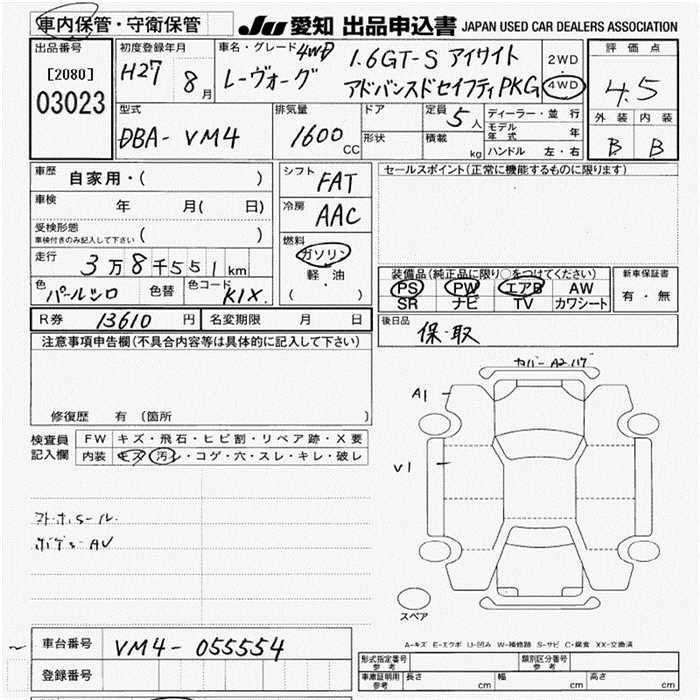 車内保管・守衛保管
JU 愛知 出品申込書 JAPAN USED CAR DEALERS ASSOCIATION
出品番号
[2080]
03023
初度登録年月
H27 8月
車名・グレード
4WD
レーヴォーグ
1.6GT-S アイサイト
アドバンスドセイフティPKG
2WD
4WD
評価点
4.5
外装 内装
B B
型式
DBA-VM4
排気量
1600 CC
ドア
形状
定員 5人
積載 kg
ディーラー・並行
モデル年式 年
ハンドル 左・右
車歴 自家用・( )
車検 年 月( 日)
受検形態
車検付きのみ記入して下さい ( )
走行 3万8千551km
色 パールシロ 色替 色コード K1X.
シフト FAT
冷房 AAC
燃料
ガソリン
軽・油
( )
セールスポイント(正常に機能するものに限ります)
装備品(純正品に限り○をつけてください)
PS PW エアB AW
SR ナビ TV カワシート
新車保証書
有・無
R券 13610 円 名変期限 月 日
後日品
保・取
注意事項申告欄(不具合内容等は具体的に記入して下さい)
修復歴 有(箇所
検査員記入欄
FW キズ・飛石・ヒビ割・リペア跡・X要
内装 キズ・汚レ・コゲ・穴・スレ・キレ・破レ
カバー A2
A1
V1
スペア
A-キズ E-エクボ U-凹み W-補修跡 S-サビ C-腐食 XX-交換済
車台番号 VM4-055554
登録番号
型式指定番号 参考
類別区分番号 参考
車庫証明用 参考 長さ cm 幅 cm 高さ cm